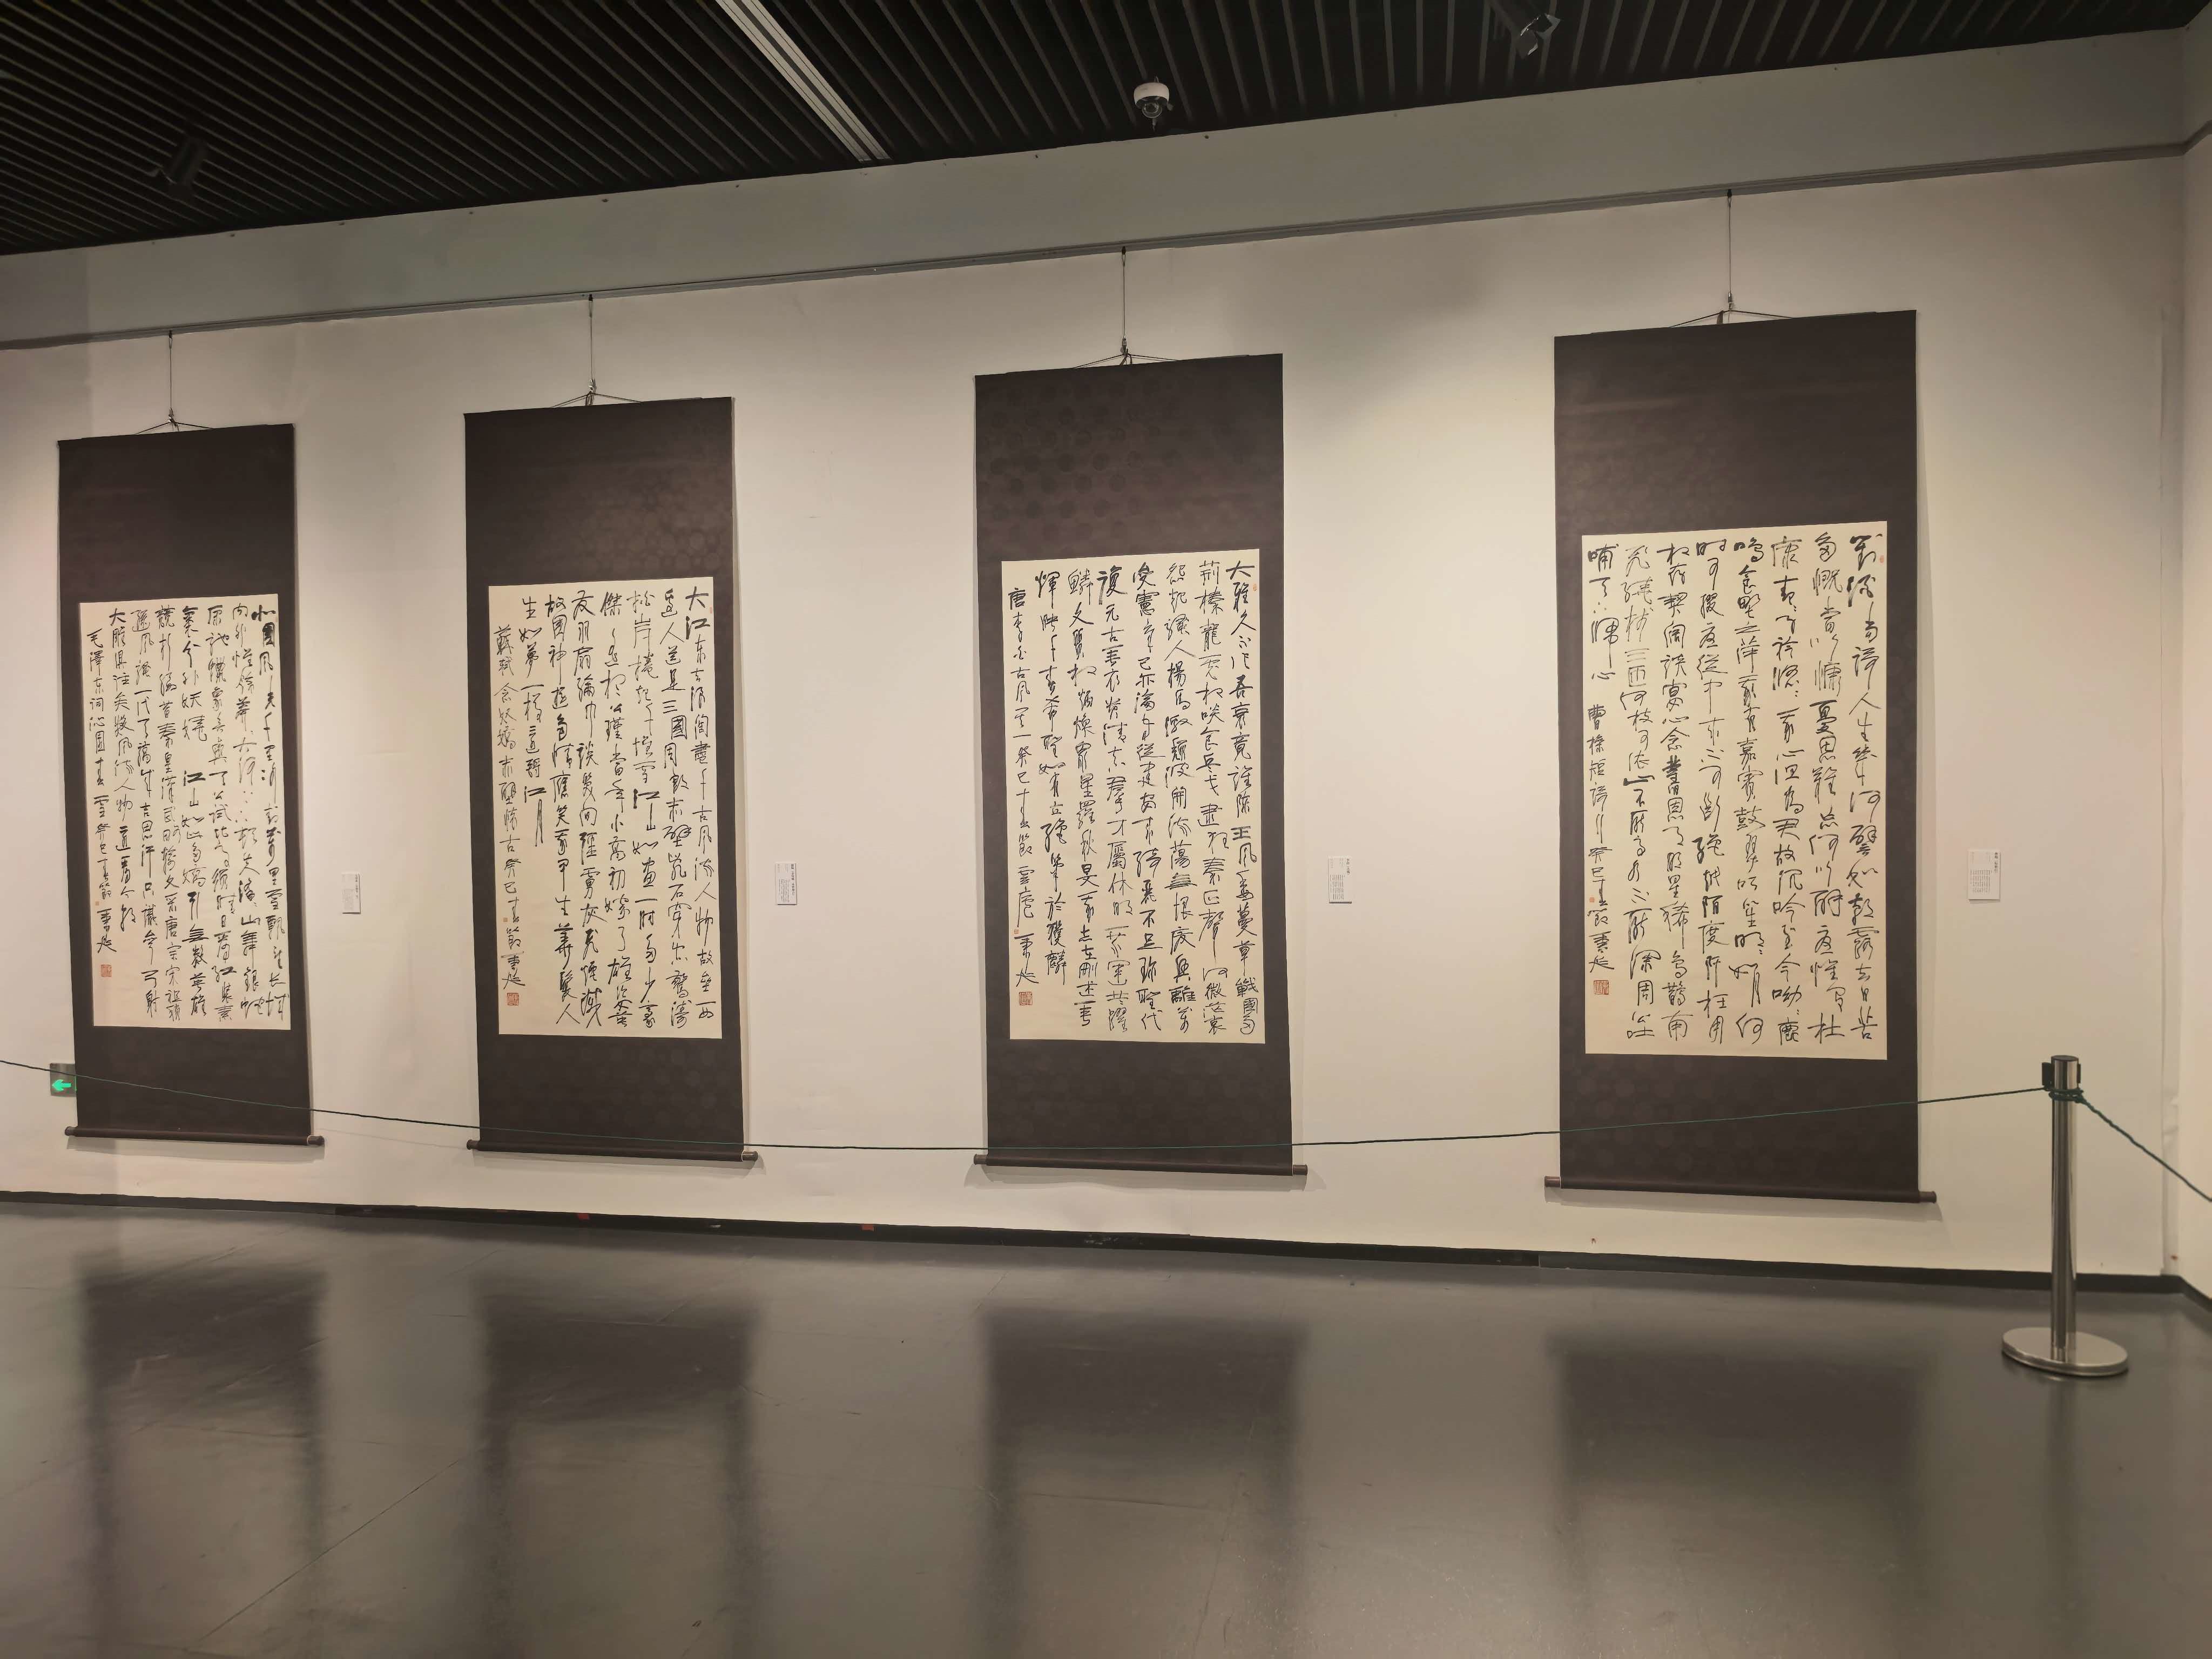 對酒當歌人生幾何譬如朝露去日苦
多慨當以慷憂思難忘何以解憂惟有杜
康青青子衿悠悠我心但為君故沉吟至今呦呦鹿
鳴食野之苹我有嘉賓鼓瑟吹笙明明如月何
時可掇憂從中來不可斷絕越陌度阡枉用
相存契闊談宴心念舊恩月明星稀烏鵲南
飛繞樹三匝何枝可依山不厭高水不厭深周公吐
哺天下歸心 曹操短歌行癸巳春節秉
大雅久不作吾衰竟誰陳王風委蔓草戰國多
荊榛龍虎相啖食兵戈逮狂秦正聲何微茫哀
怨起騷人揚馬激頹波開流蕩無垠廢興雖萬
變憲章亦已淪自從建安來綺麗不足珍聖代
復元古垂衣貴清真群才屬休明乘運共躍
鱗文質相炳煥眾星羅秋旻我志在刪述垂
輝映千春希聖如有立絕筆於獲麟
唐李白古風其一癸巳春節雲庵秉
大江东去浪淘盡千古風流人物故壘西
邊人道是三國周郎赤壁亂石穿空驚濤
拍岸捲起千堆雪江山如畫一時多少豪
傑遙想公瑾當年小喬初嫁了雄姿英
發羽扇綸巾談笑間檣櫓灰飛煙滅
故國神遊多情應笑我早生華髮人
生如夢一樽還酹江月
蘇軾念奴嬌赤壁懷古癸巳春節秉
北國風光千里冰封萬里雪飄望長城
內外惟餘莽莽大河上下頓失滔滔山舞銀蛇
原馳蠟象欲與天公試比高須晴日看紅裝素
裹分外妖嬈江山如此多嬌引無數英雄
競折腰昔秦皇漢武略輸文采唐宗宋祖稍
遜風騷一代天驕成吉思汗只識彎弓射
大雕俱往矣數風流人物還看今朝
毛澤东詞沁園春雪癸巳春節秉